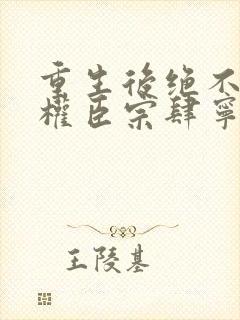 重生後绝不
權臣宗肆寧
王陵基